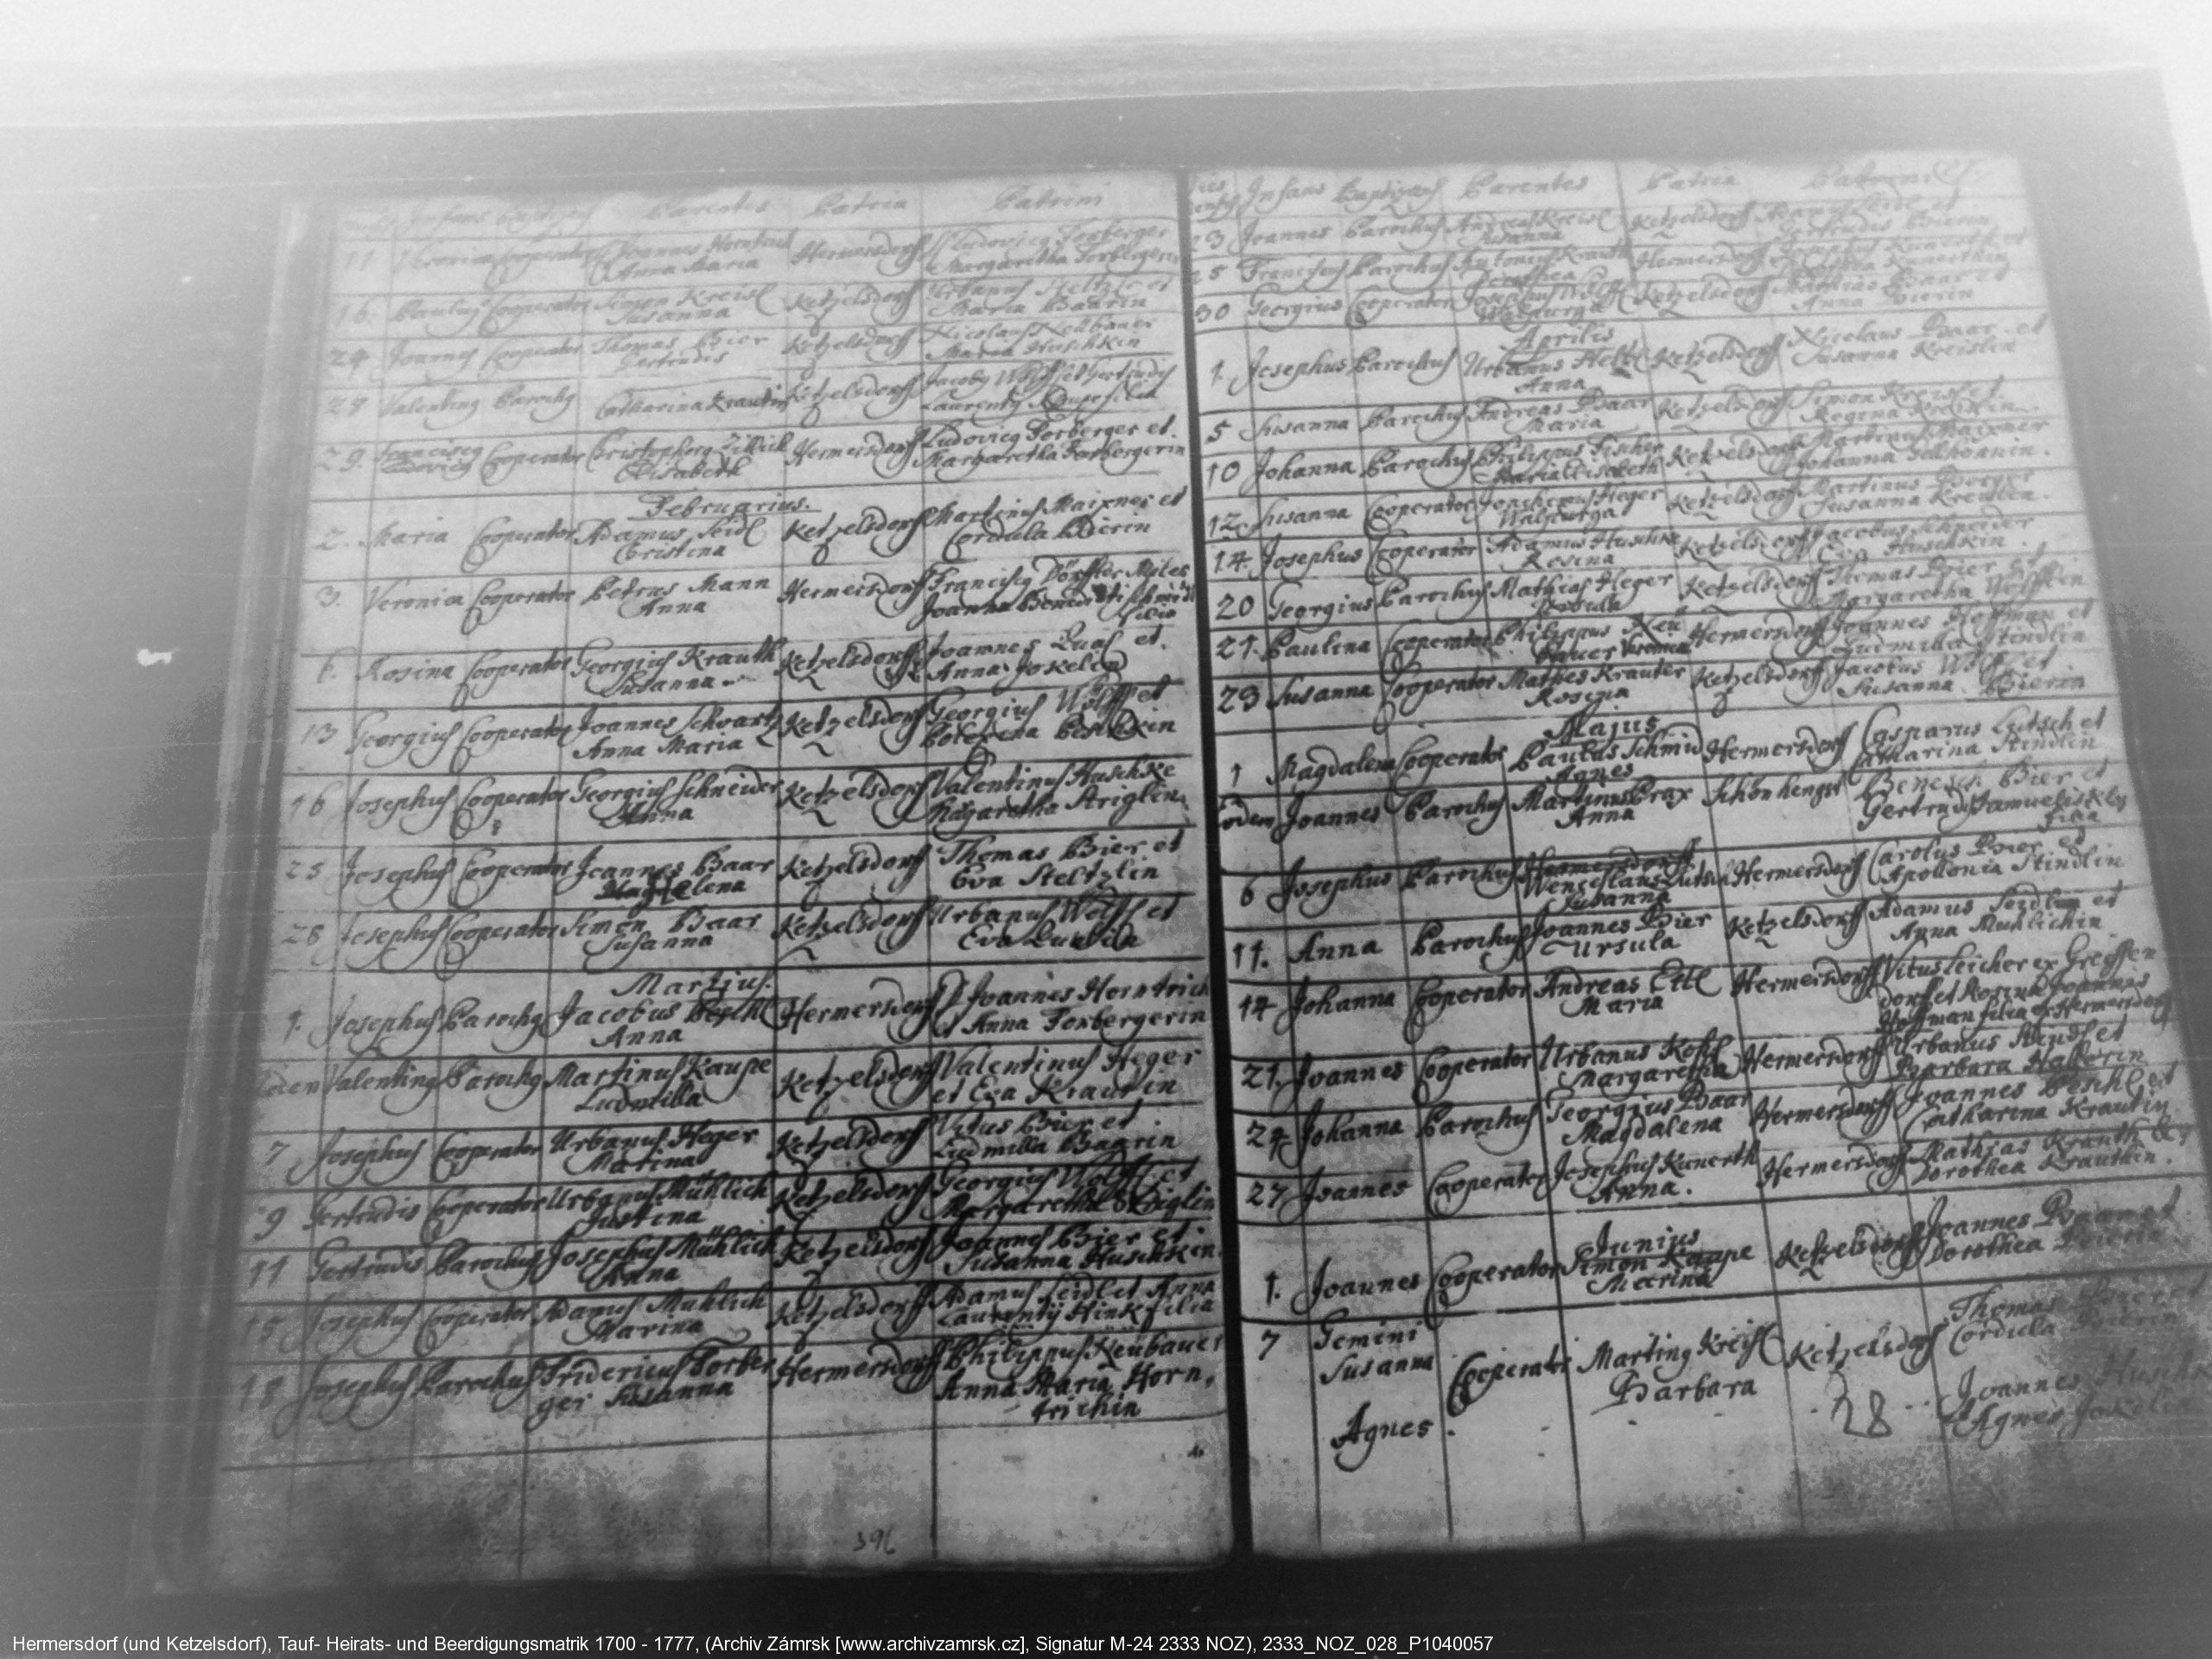 Infans Baptizans Parentes Patria Patrini
11 Veronica Cooperator Joannes Horntrich Hermersdorff Ludovicg Forberger
Anna Maria Margaretha Forbergerin
16. Paulus Cooperator Simon Kreisl Ketzelsdorff Urbanus Steltzl et
Susanna Maria Baarin
24 Joannes Cooperator Thomas Bier Ketzelsdorff Nicolaus
Gertrudis Maria Huschkin
28 Valenting Parochg Catharina Krautin Ketzelsdorff Jacobg Wolff et Gertrudis
Laurentij Kaupe filia
29. Franciscg Cooperator Christophorg Hermersdorff Ludovicg Forberger et
Ludovicg Elisabeth Margaretha Forbergerin
Februarius.
2. Maria Cooperator Adamus Seidl Ketzelsdorff Martinus Maixner et
Cristina Cordula Bierin
3. Veronica Cooperator Petrus Mann Hermersdorff Franciscg Dörffler Miles
Anna Joanna Benedicti Schmidl
filia
Rosina Cooperator Georgius Krauth Ketzelsdorff Joannes Qual et
Susanna Anna Jokelin
13 Georgius Cooperator Joannes Schvartz Ketzelsdorff Georgius Wolff et
Anna Maria
16 Josephus Cooperator Georgius Schneider Ketzelsdorff Valentinus Huschke
Anna Margaretha Striglin
25 Josephus Cooperator Joannes Baar Ketzelsdorff Thomas Bier et
Magdalena Eva Steltzlin
28 Josephus Cooperator Simon Baar Ketzelsdorff Urbanus Wolff et
Susanna Eva
Martius.
1. Josephus Parochg Jacobus Hermersdorff Joannes Horntrich
Anna et Anna Forbergerin
Valenting Parochg Martinus Kaupe Ketzelsdorff Valentinus Heger
Ludmilla et Eva Krautin
7 Josephus Cooperator Urbanus Heger Ketzelsdorff Vitus Bier et
Marina Ludmilla Baarin
9 Gertrudis Cooperator Urbanus Mühlich Ketzelsdorff Georgius Wolff et
Justina Margaretha Striglin
11 Gertrudis Parochus Josephus Mühlich Ketzelsdorff Joannes Bier et
Anna Susanna Huschkin
15 Josephus Cooperator Adamus Mühlich Ketzelsdorff Adamus Seidl et Anna
Marina Laurentij Hink filia
18 Josephus Parochus Fridericus Forber Hermersdorff Philippus Neübauer
ger Susanna Anna Maria Horn,
trichin
396
Infans Baptizans Parentes Patria Patrini
23 Joannes Parochus Andreas Kreisl Ketzelsdorff Adamus Seidl et
Susanna Gertrudis Bierin
25 Franciscus Parochus Antonius Krauth Hermersdorff Josephus Kunerth et
Dorothea Kunerthin
30 Georgius Cooperator Josephus Wolff Ketzelsdorff Mathias Baar et
Walpurga Anna Bierin
Aprilis
1. Josephus Parochus Urbanus Ketzelsdorff Nicolaus Baar et
Anna Susanna Kreislin
5 Susanna Parochus Andreas Baar Ketzelsdorff Simon Kreisl et
Maria Regina Kreislin
10 Johanna Parochus Philippus Fischer Ketzelsdorff Martinus Maixner
Maria Elisabeth Johanna
12. Susanna Cooperator Joachimus Heger Ketzelsdorff Martinus
Walpurga Susanna Kreislin.
14. Josephus Cooperator Adamus Huschke Ketzelsdorff Jacobus Schneider
Rosina Eva Huschkin
20 Georgius Parochus Mathias Heger Ketzelsdorff Thomas Bier et
Ursula Margaretha Wolffin
21. Paulina Cooperator Philippus Neü Hermersdorff Joannes Hoffman et
bauer Veronica Ludmilla Stindlin
23 Susanna Cooperator Mathes Krauter Ketzelsdorff Jacobus Wolff et
Rosina Susanna Bierin
Majus
1 Magdalena Cooperator Paulus Schmid Hermersdorff Casparus Lutsch et
Agnes Catharina Stindlin
Eodem Joannes Parochus Martinus Prax Schönhengst Benesch Bier et
Anna Gertrudis Samuelis
filia
Hermersdorff
6 Josephus Parochus Wenceslaus Lutsch Hermersdorff Carolus Bier et
Susanna Apollonia Stindlin
11. Anna Parochus Joannes Bier Ketzelsdorff Adamus et
Ursula Anna Muhlichin
14 Johanna Cooperator Andreas Ettl Hermersdorff Vitus Leicher ex Greiffen
Maria dorff et Rosina Joannis
Hoffman filia ex Hermersdorff
21. Joannes Cooperator Urbanus Hermersdorff Urbanus Stindl et
Margaretha Barbara
24 Johanna Parochus Georgius Baar Hermersdorff Joannes Peschl et
Magdalena Catharina Krautin
27 Joannes Cooperator Josephus Kunerth Hermersdorff Mathias Krauth &
Anna. Dorothea Krauthin.
Junius
1. Joannes Cooperator Simon Kaupe Ketzelsdorff Joannes Baar et
Mecrina Dorothea
7 Gemini Thomas
Susanna Cooperator Marting Kreisl Ketzelsdorff Cordula Bierin
Barbara
Agnes. 28 Joannes
Agnes Jokelin
Hermersdorf (und Ketzelsdorf), Tauf- Heirats- und Beerdigungsmatrik 1700 - 1777, (Archiv Zámrsk [www.archivzamrsk.cz], Signatur M-24 2333 NOZ), 2333_NOZ_028_P1040057